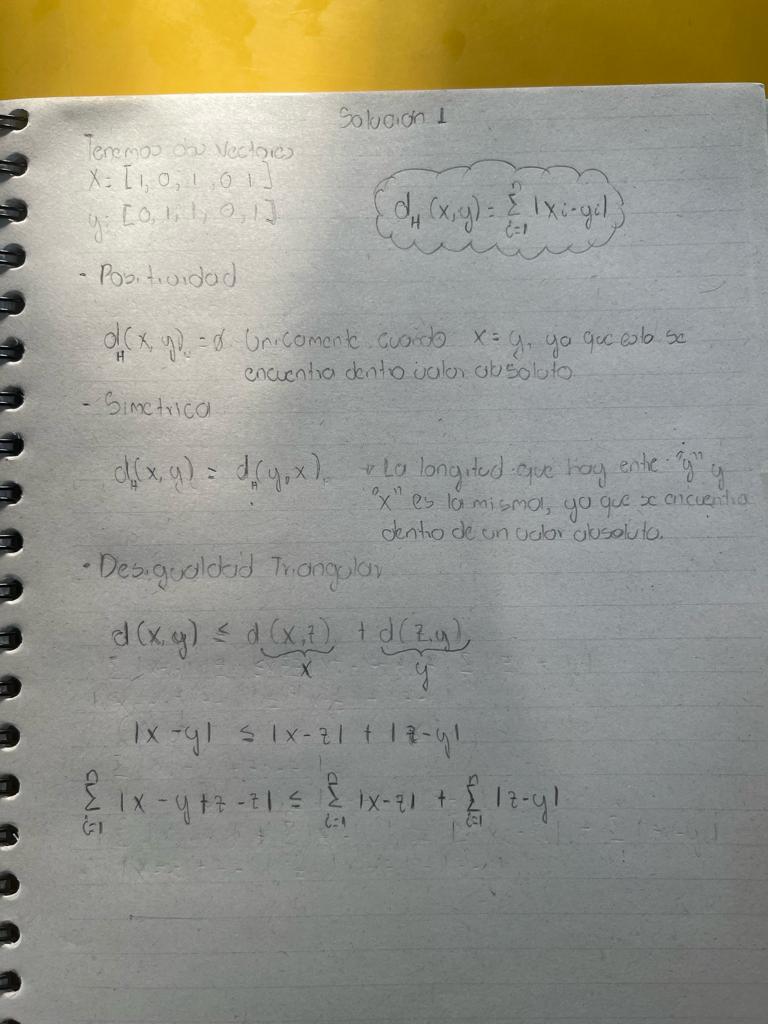 Solución 1
Tenemos dos vectores
x= [1, 0, 1, 0 1]
y= [0, 1, 1, 0, 1]
d_H (x,y) = Σ_{i=1}^{n} |xi - yi|
- Positividad
d_H(x, y) = 0 Unicamente cuando x = y, ya que esto se
encuentra dentro valor absoluto
- Simetrica
d_H(x, y) = d_H(y, x). La longitud que hay entre "y" y
"x" es la misma, ya que se encuentra
dentro de un valor absoluto.
· Desigualdad Triangular
d(x, y) ≤ d(x,z) + d(z,y)
x y
|x - y| ≤ |x - z| + |z - y|
Σ_{i=1}^{n} |x - y + z - z| ≤ Σ_{i=1}^{n} |x - z| + Σ_{i=1}^{n} |z - y|